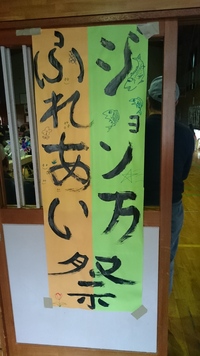 ジョン万
ふれあい祭